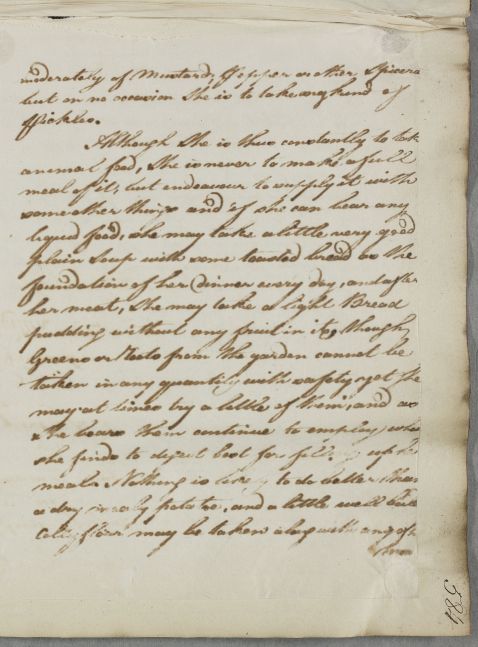 moderately of Mustard, Pepper or other Spicera
but on no occasion she is to take any kind of
Pickles.
Although she is thus constantly to take
animal food, she is never to make a full
meal of it, but endeavour to supply it with
some other things and if she can bear any
liquid food, she may take a little very good
plain Soup with some toasted bread as the
foundation of her Dinner every day, and after
her meat, she may take a light Bread
pudding without any fruit in it, though
Greens or Roots from the garden cannot be
taken in any quantity with safety, yet she
may at times try a little of them, and as
she bears them continue to employ what
she finds to digest best for filling up her
meals. Nothing is likely to do better than
a dry mealy potatoe, and a little well
may be taken along with any of
584